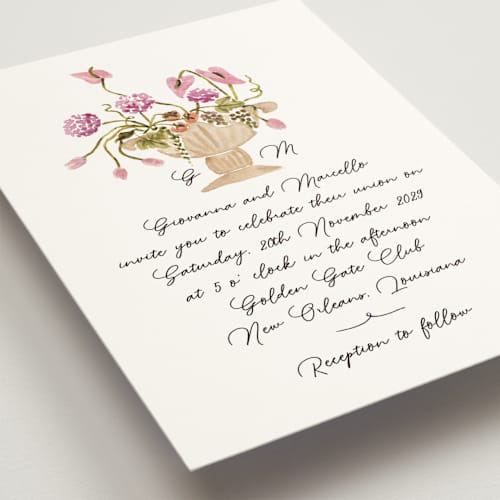 G M
Giovanna and Marcello
invite you to celebrate their union on
Saturday, 20th November 2029
at 5 o' clock in the afternoon
Golden Gate Club
New Orleans, Louisiana
Reception to follow